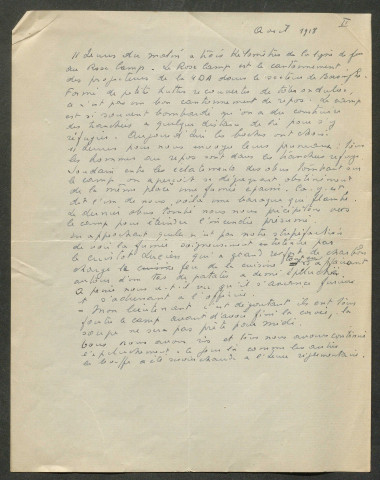 II
Août 1918
11 heures du matin à trois kilomètres de la ligne de feu
au Rose Camp. Le Rose Camp est le cantonnement
des projecteurs de la DCA dans le secteur de
Formé de petites huttes recouvertes de tôles ondulées.
ce n'est pas un bon cantonnement de repos. Le camp
est si souvent bombardé qu'on a dû construire
des tranchées à quelque distance de là pour s'y
réfugier. Aujourd'hui les boches ont choisi
11 heures pour nous envoyer leurs pruneaux. Tous
les hommes au repos sont dans les tranchées refuge
Soudain entre les éclatements des obus tombant sur
le camp on aperçoit se dégageant obstinément
de la même place une fumée épaisse. Ça y est,
dit l'un de nous, voilà une baraque qui flambe.
Le dernier obus tombé nous nous précipitons vers
le camp pour éteindre l'incendie présumé.
En approchant quelle n'est pas notre stupéfaction
de voir la fumée soigneusement entretenue par
le cuistot Lucien qui à grand renfort de charbon
charge le feu de la cuisine
autour d'un tas de patates à demi épluchées.
A peine nous a-t-il vu qu'il s'avance furieux
et s'adressant à l'officier.
- Mon lieutenant c'est dégoûtant ils ont tous
foutu le camp avant d'avoir fini la corvée, la
soupe ne sera pas prête pour midi.
Nous nous avons ri et tous nous avons continué
l'épluchement. Ce jour là comme les autres
la bouffe a été chaude à l'heure réglementaire.